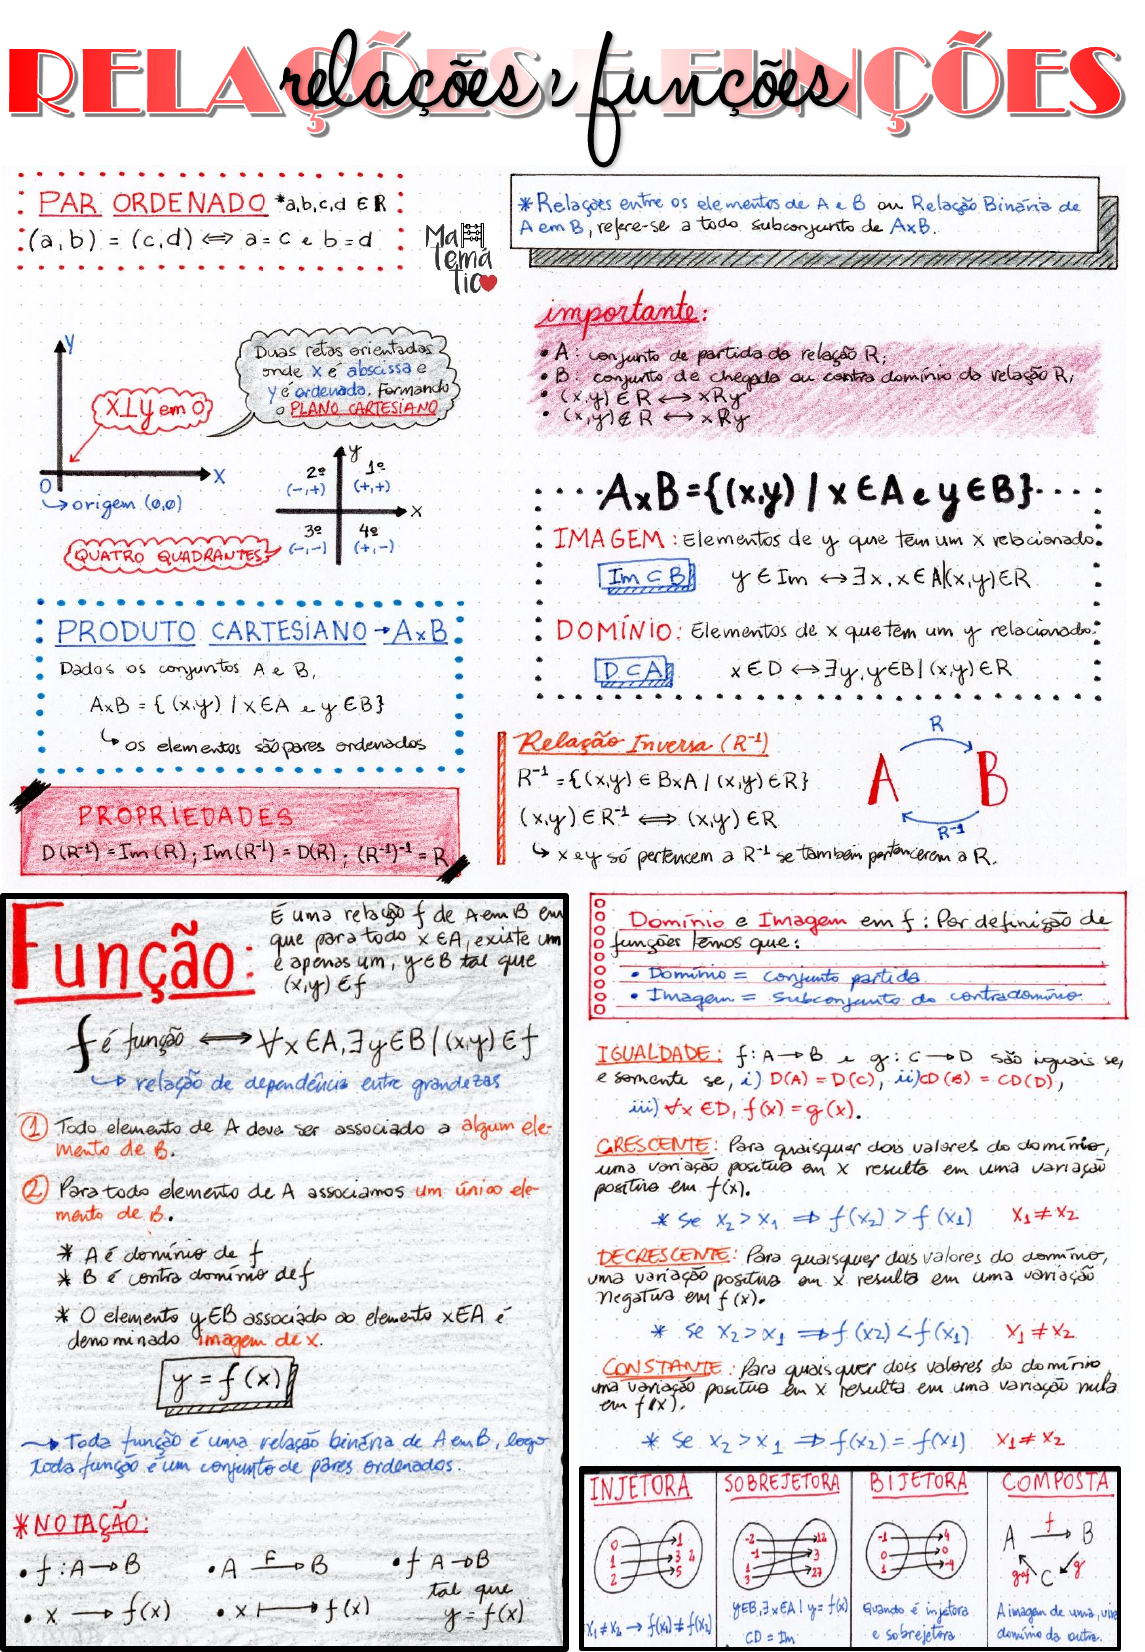 RELAÇÕES E FUNÇÕES
relações e funções
PAR ORDENADO *a,b,c,d ∈ R
(a,b) = (c,d) ⟺ a = c e b = d
Ma
temá
tica
* Relações entre os elementos de A e B ou Relação Binária de
A em B, refere-se a todo subconjunto de AxB.
Y
X⊥Y em O
O
X
origem (0,0)
Duas retas orientadas
onde X é abscissa e
y é ordenada, formando
o PLANO CARTESIANO
y
2º 1º
(-,+) (+,+)
x
3º 4º
(-,-) (+,-)
QUATRO QUADRANTES
importante:
• A: conjunto de partida da relação R;
• B: conjunto de chegada ou contra domínio da relação R;
• (x,y) ∈ R ⟷ xRy
• (x,y) ∉ R ⟷ x R y
AxB = {(x,y) / x ∈ A e y ∈ B}
IMAGEM: Elementos de y que tem um x relacionado.
Im ⊂ B y ∈ Im ⟷ ∃ x, x ∈ A|(x,y) ∈ R
DOMÍNIO: Elementos de x que tem um y relacionado.
D ⊂ A x ∈ D ⟷ ∃ y, y ∈ B | (x,y) ∈ R
PRODUTO CARTESIANO → AxB
Dados os conjuntos A e B,
AxB = { (x,y) / x ∈ A e y ∈ B}
↳ os elementos são pares ordenados
PROPRIEDADES
D(R⁻¹) = Im(R) ; Im(R⁻¹) = D(R) ; (R⁻¹)⁻¹ = R
Relação Inversa (R⁻¹)
R⁻¹ = {(x,y) ∈ BxA / (x,y) ∈ R}
(x,y) ∈ R⁻¹ ⟺ (x,y) ∈ R
↳ x e y só pertencem a R⁻¹ se também pertencerem a R.
R
A B
R⁻¹
Função:
É uma relação f de A em B em
que para todo x ∈ A, existe um
e apenas um, y ∈ B tal que
(x,y) ∈ f
f é função ⟺ ∀ x ∈ A, ∃ y ∈ B | (x,y) ∈ f
↳ relação de dependência entre grandezas
1 Todo elemento de A deve ser associado a algum ele-
mento de B.
2 Para todo elemento de A associamos um único ele-
mento de B.
* A é domínio de f
* B é contra domínio de f
* O elemento y ∈ B associado ao elemento x ∈ A é
denominado imagem de x.
y = f(x)
→ Toda função é uma relação binária de A em B, logo
toda função é um conjunto de pares ordenados.
* NOTAÇÃO:
• f : A → B • A F→ B • f A → B
tal que
• x → f(x) • x ⟼ f(x) y = f(x)
Domínio e Imagem em f : Por definição de
funções temos que:
• Domínio = conjunto partida
• Imagem = subconjunto do contradomínio
IGUALDADE: f: A → B e g : C → D são iguais se,
e somente se, i) D(A) = D(C), ii) CD(B) = CD(D),
iii) ∀x ∈ D, f(x) = g(x).
CRESCENTE: Para quaisquer dois valores do domínio,
uma variação positiva em x resulta em uma variação
positiva em f(x).
* se x₂ > x₁ ⟹ f(x₂) > f(x₁) x₁ ≠ x₂
DECRESCENTE: Para quaisquer dois valores do domínio,
uma variação positiva em x resulta em uma variação
negativa em f(x).
* se x₂ > x₁ ⟹ f(x₂) < f(x₁) x₁ ≠ x₂
CONSTANTE: Para quaisquer dois valores do domínio,
uma variação positiva em x resulta em uma variação nula
em f(x).
* se x₂ > x₁ ⟹ f(x₂) = f(x₁) x₁ ≠ x₂
INJETORA
0 1
1 3 2
2 5
x₁ ≠ x₂ → f(x₁) ≠ f(x₂)
SOBREJETORA
-2 12
-1 3
1
3 27
y ∈ B, ∃ x ∈ A | y = f(x)
CD = Im
BIJETORA
-1 4
0 0
1 -4
Quando é injetora
e sobrejetora
COMPOSTA
f
A B
gof C g
A imagem de uma, vira
domínio da outra.